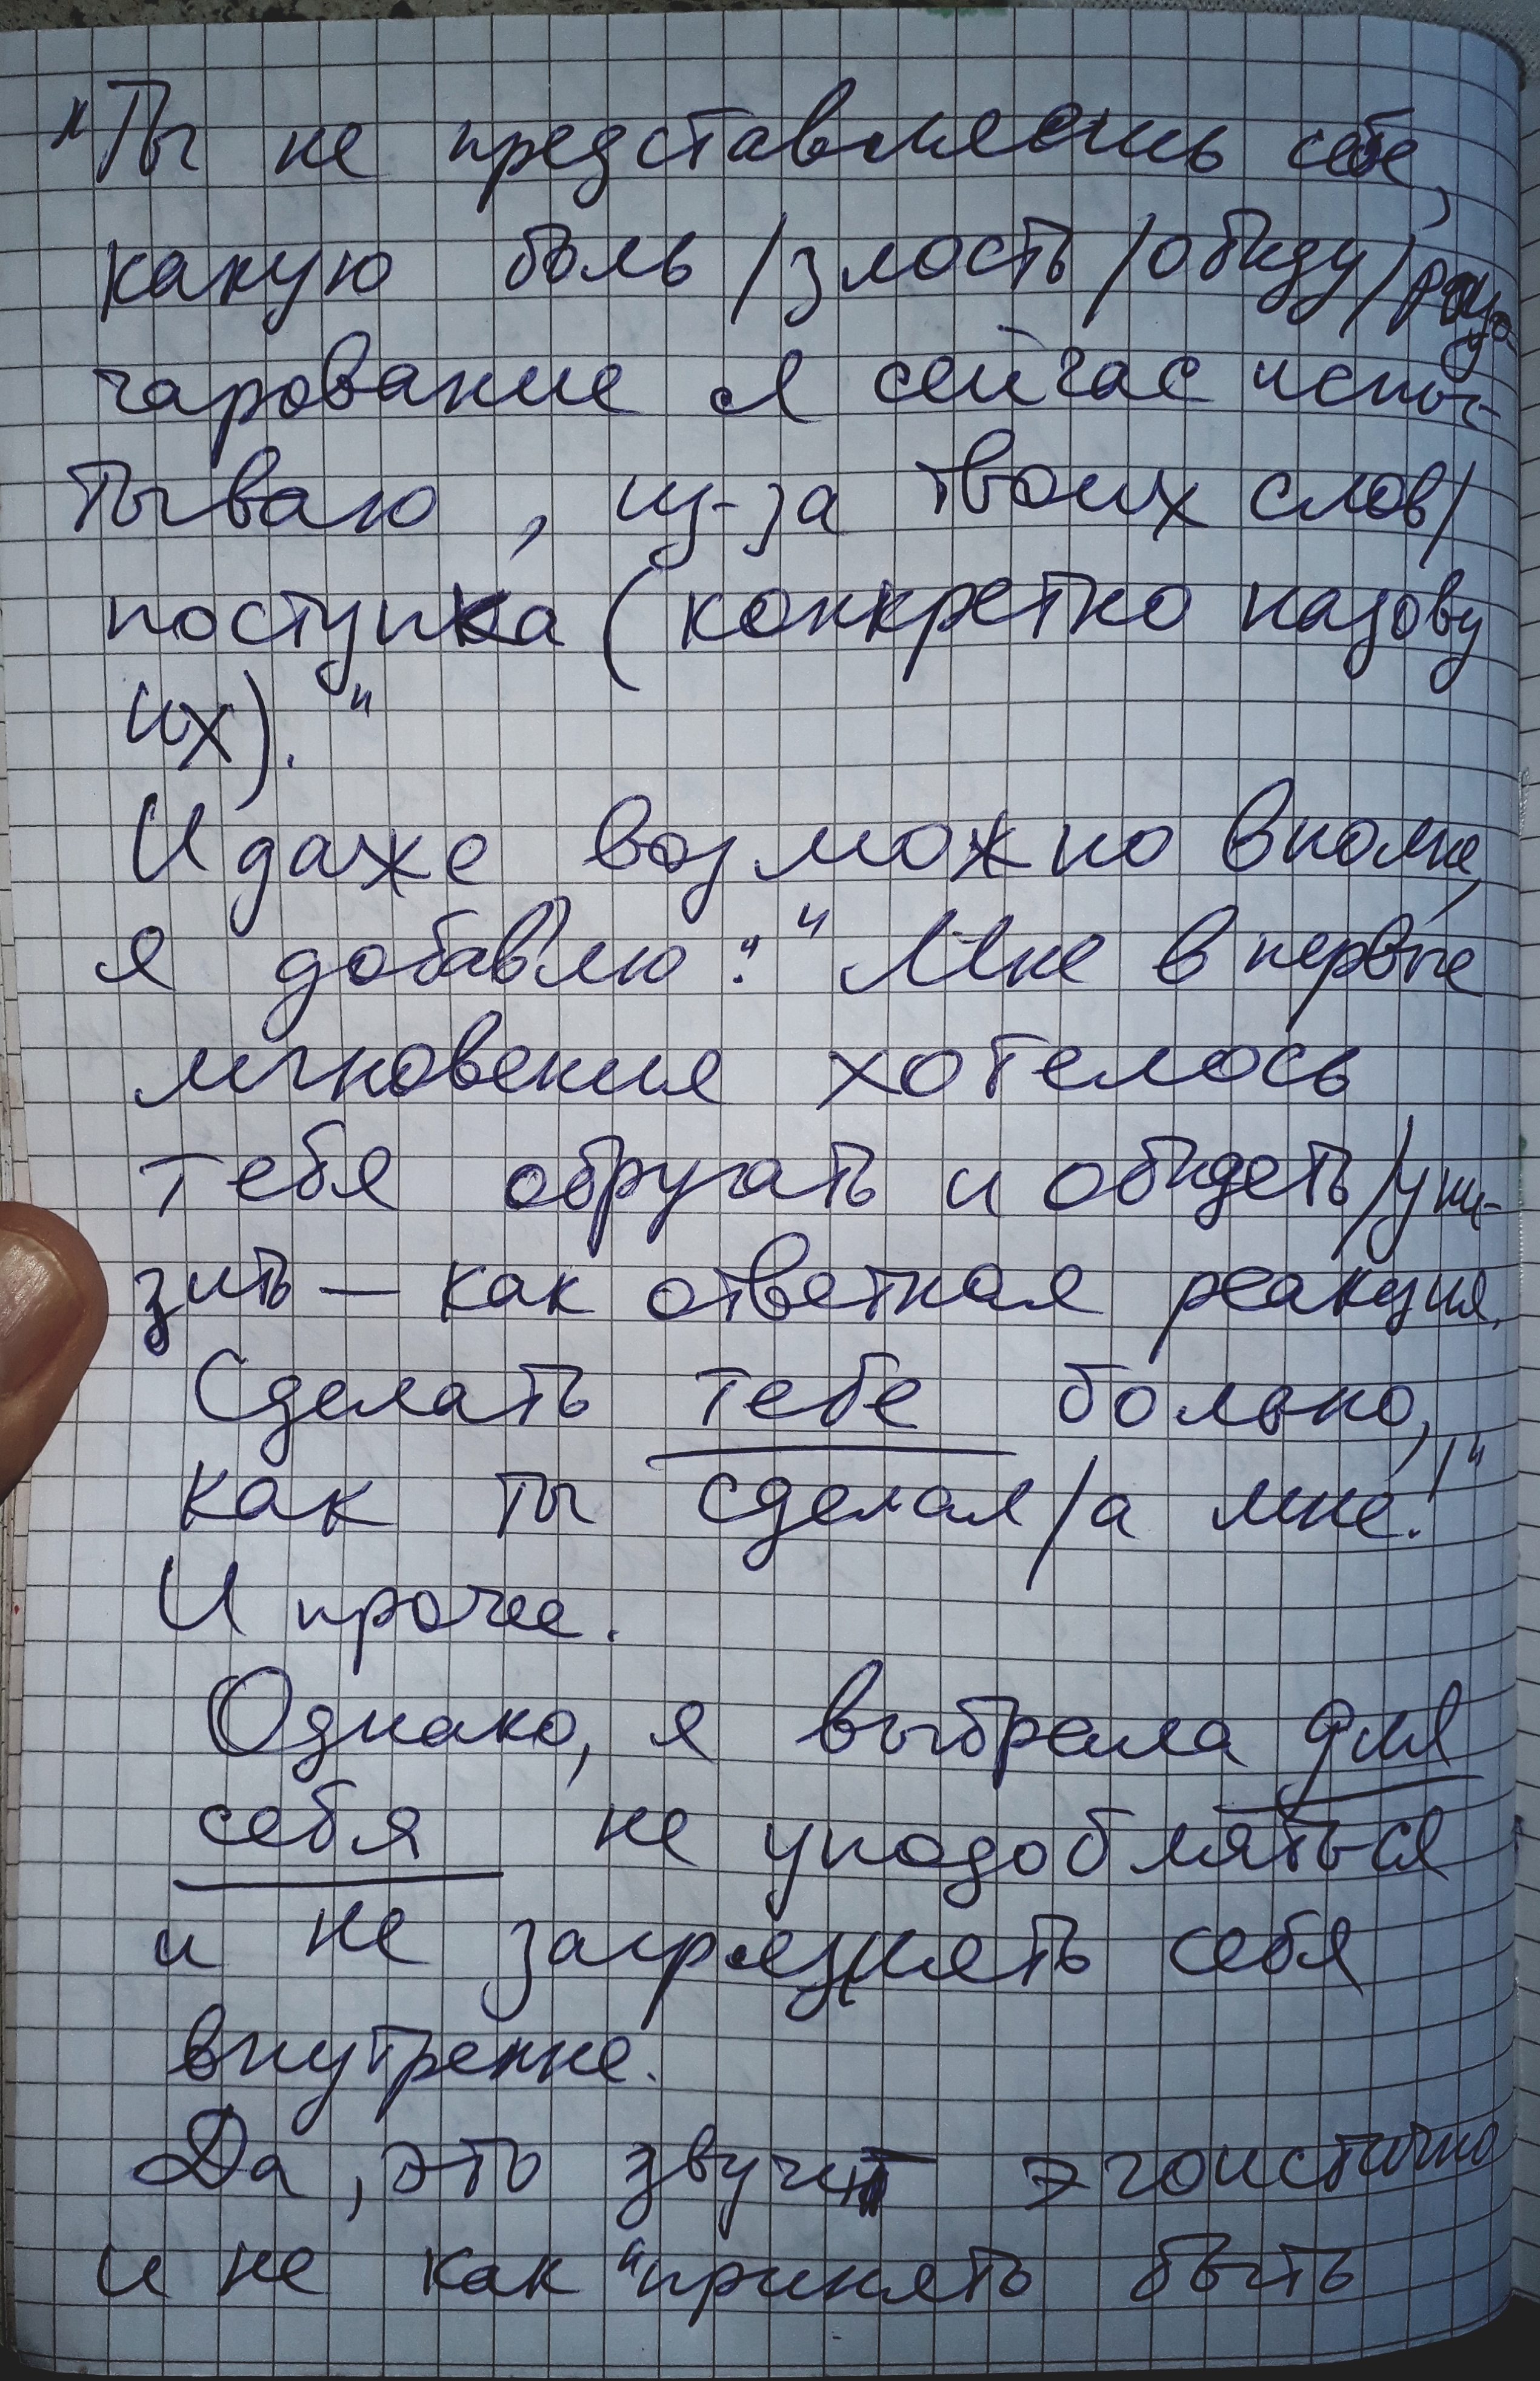 "Ты не представляешь себе,
какую боль/злость/обиду/разо-
чарование я сейчас испы-
тываю, из-за твоих слов/
поступка (конкретно назову
их)."
И даже возможно вполне,
я добавлю: "Мне в первые
мгновения хотелось
тебя обругать и обидеть/уни-
зить — как ответная реакция.
Сделать тебе больно,
как ты сделал/а мне!"
И прочее.
Однако, я выбрала для
себя не уподобляться
и не загрязнять себя
внутренне.
Да, это звучит эгоистично
и не как "принять быть